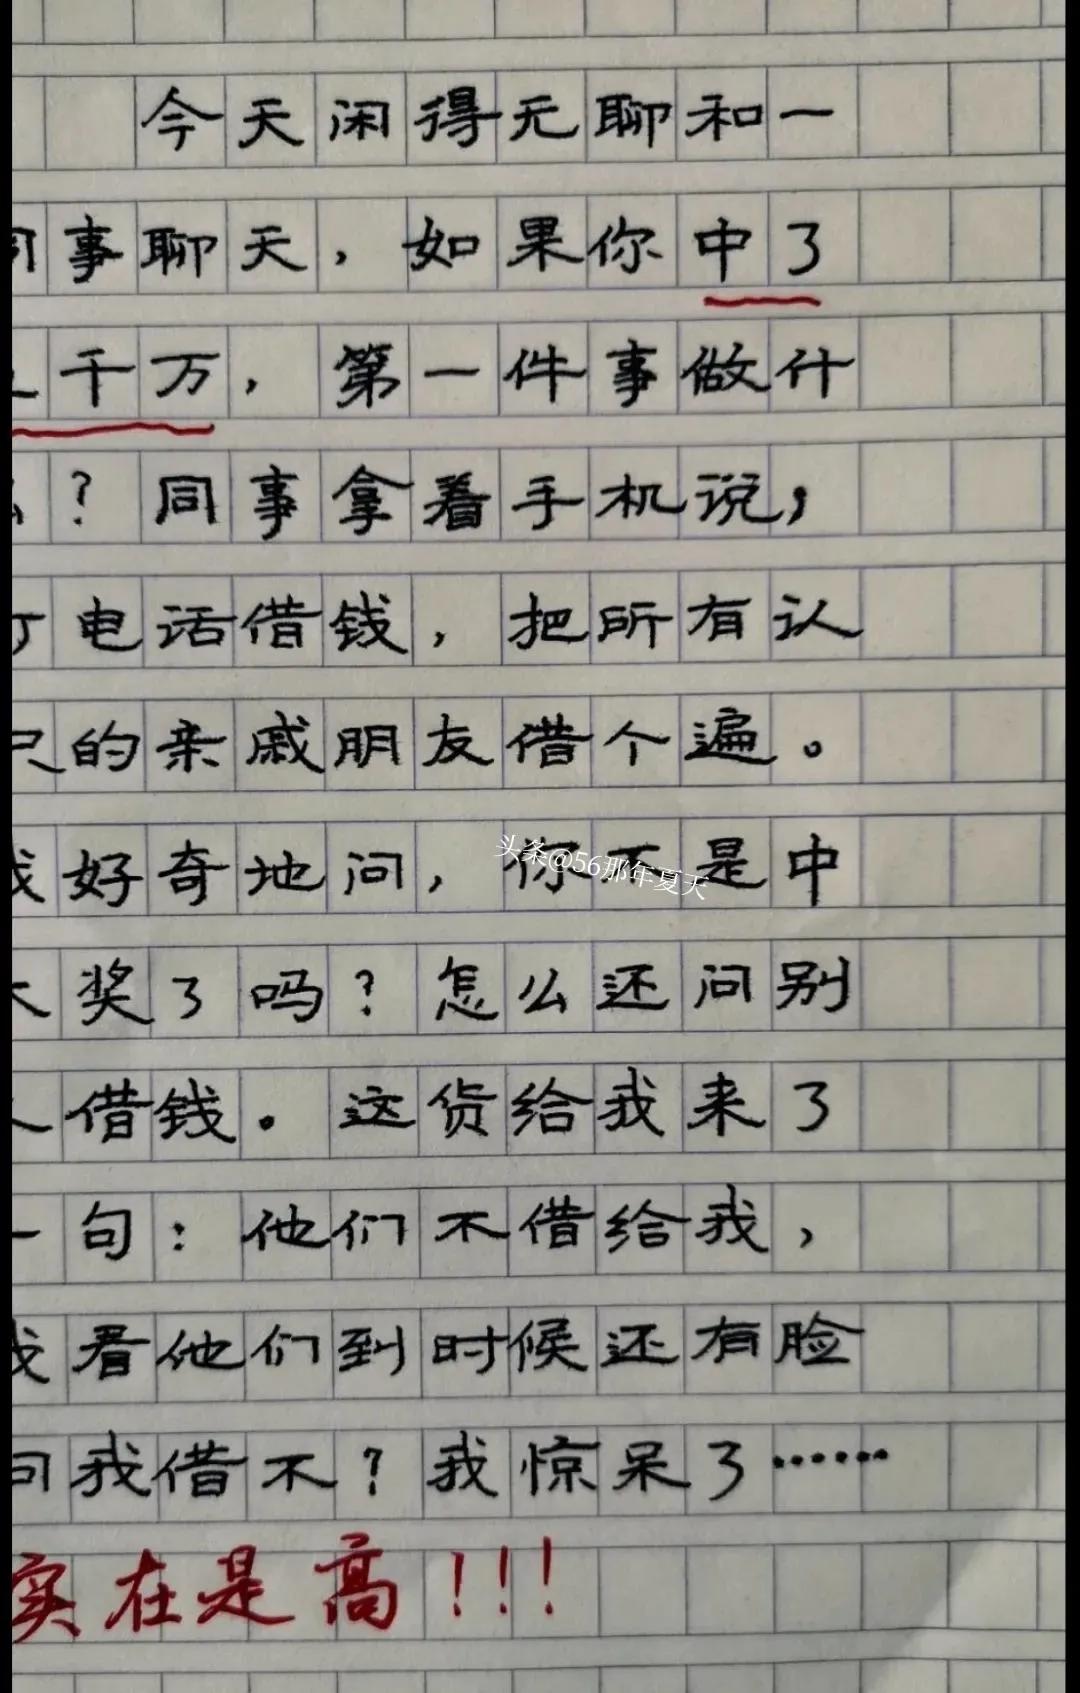 今天闲得无聊和一
同事聊天，如果你中了
千万，第一件事做什
么？同事拿着手机说，
打电话借钱，把所有认
识的亲戚朋友借个遍。
我好奇地问，你不是中
大奖了吗？怎么还问别
人借钱。这货给我来了
一句：他们不借给我，
我看他们到时候还有脸
问我借不？我惊呆了……
实在是高！！！
头条@56那年夏天